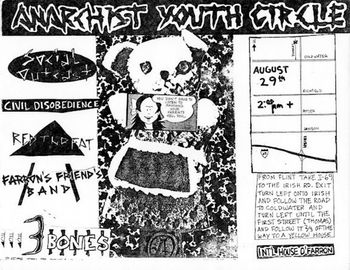 ANARCHIST YOUTH CIRCLE
Social
Outkast
CIVIL DISOBEDIENCE
FARRON'S FRIEND'S
BAND
3 BONES
YOU DON'T HAVE TO
LISTEN TO
YOUR
PARENTS
AUGUST
29th
2:00 pm +
COLDWATER
FROM FLINT TAKE I-69
TO THE IRISH RD. EXIT
TURN LEFT ONTO IRISH
AND FOLLOW THE ROAD
TO COLDWATER AND
TURN LEFT UNTIL THE
FIRST STREET (THOMAS)
AND FOLLOW IT 3/4 OF THE
WAY TO A YELLOW HOUSE
INT'L HOUSE O' FARRON